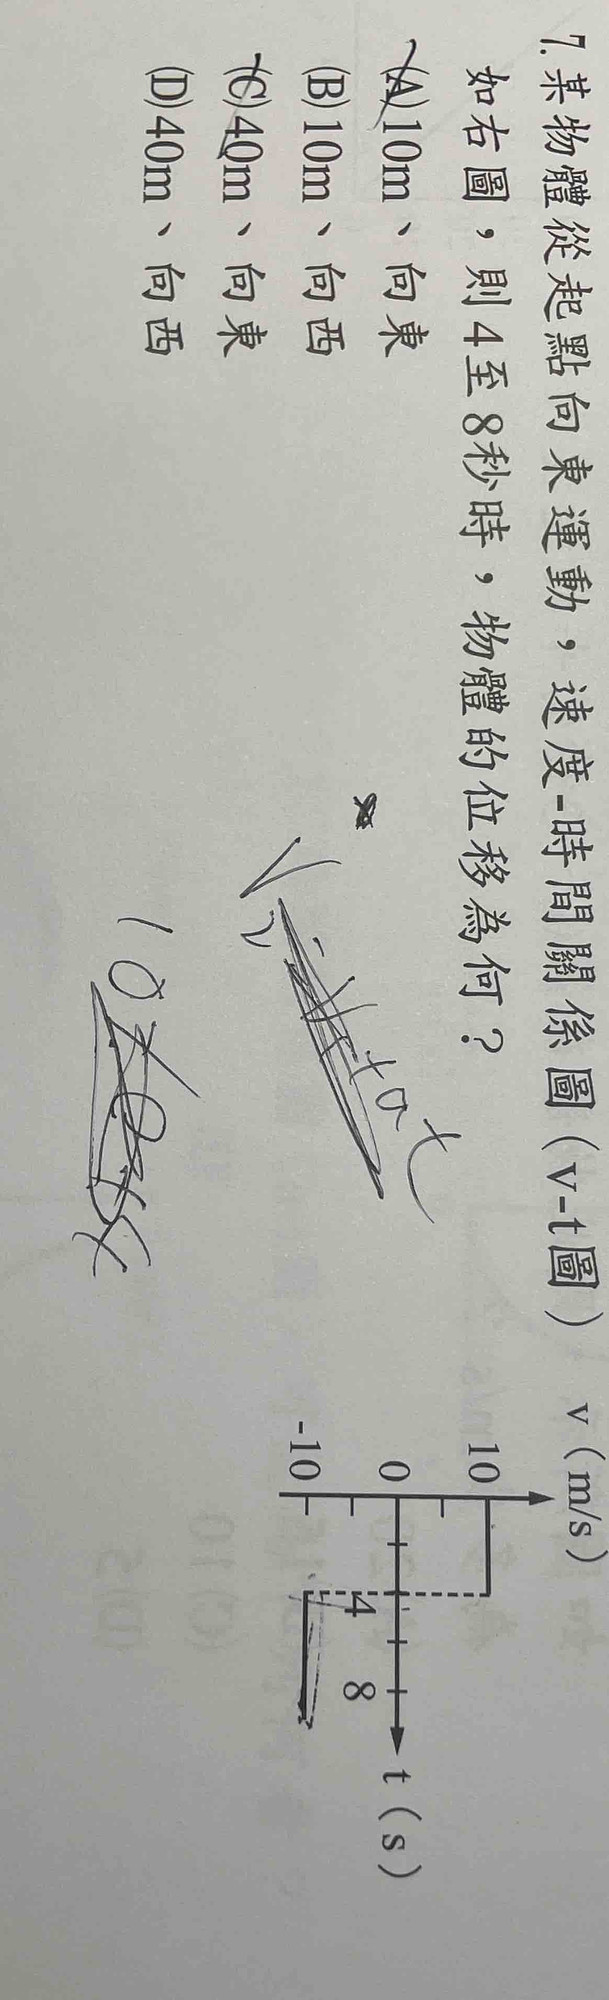 7.某物體從起點向東運動，速度-時間關係圖(v-t圖)
如右圖，則4至8秒時，物體的位移為何？
(A)10m、向東
(B)10m、向西
(C)40m、向東
(D)40m、向西
v(m/s)
10
0
-10
4
8
t(s)